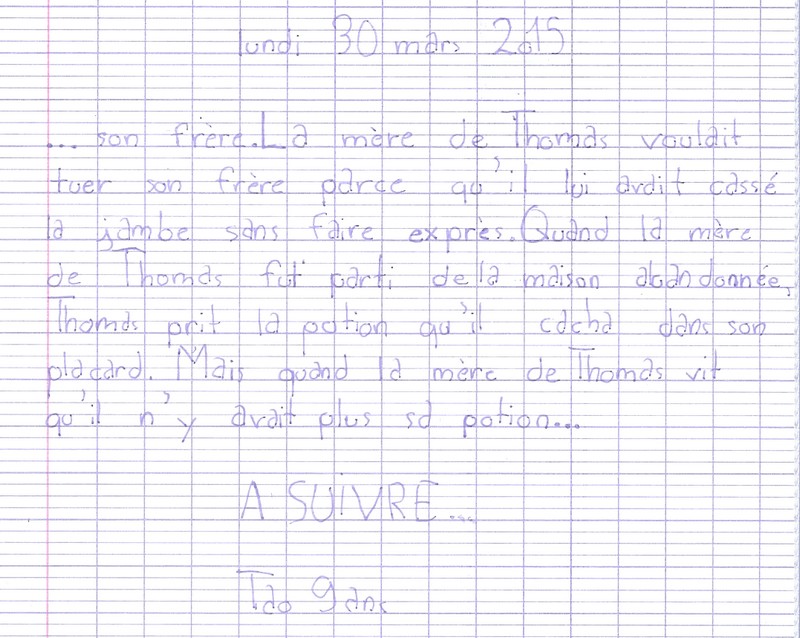 lundi 30 mars 2015
... son frère. La mère de Thomas voulait
tuer son frère parce qu'il lui avait cassé
la jambe sans faire exprès. Quand la mère
de Thomas fut parti de la maison abandonnée,
Thomas prit la potion qu'il cacha dans son
placard. Mais quand la mère de Thomas vit
qu'il n'y avait plus sa potion...
A SUiVRE...
Tao 9 ans